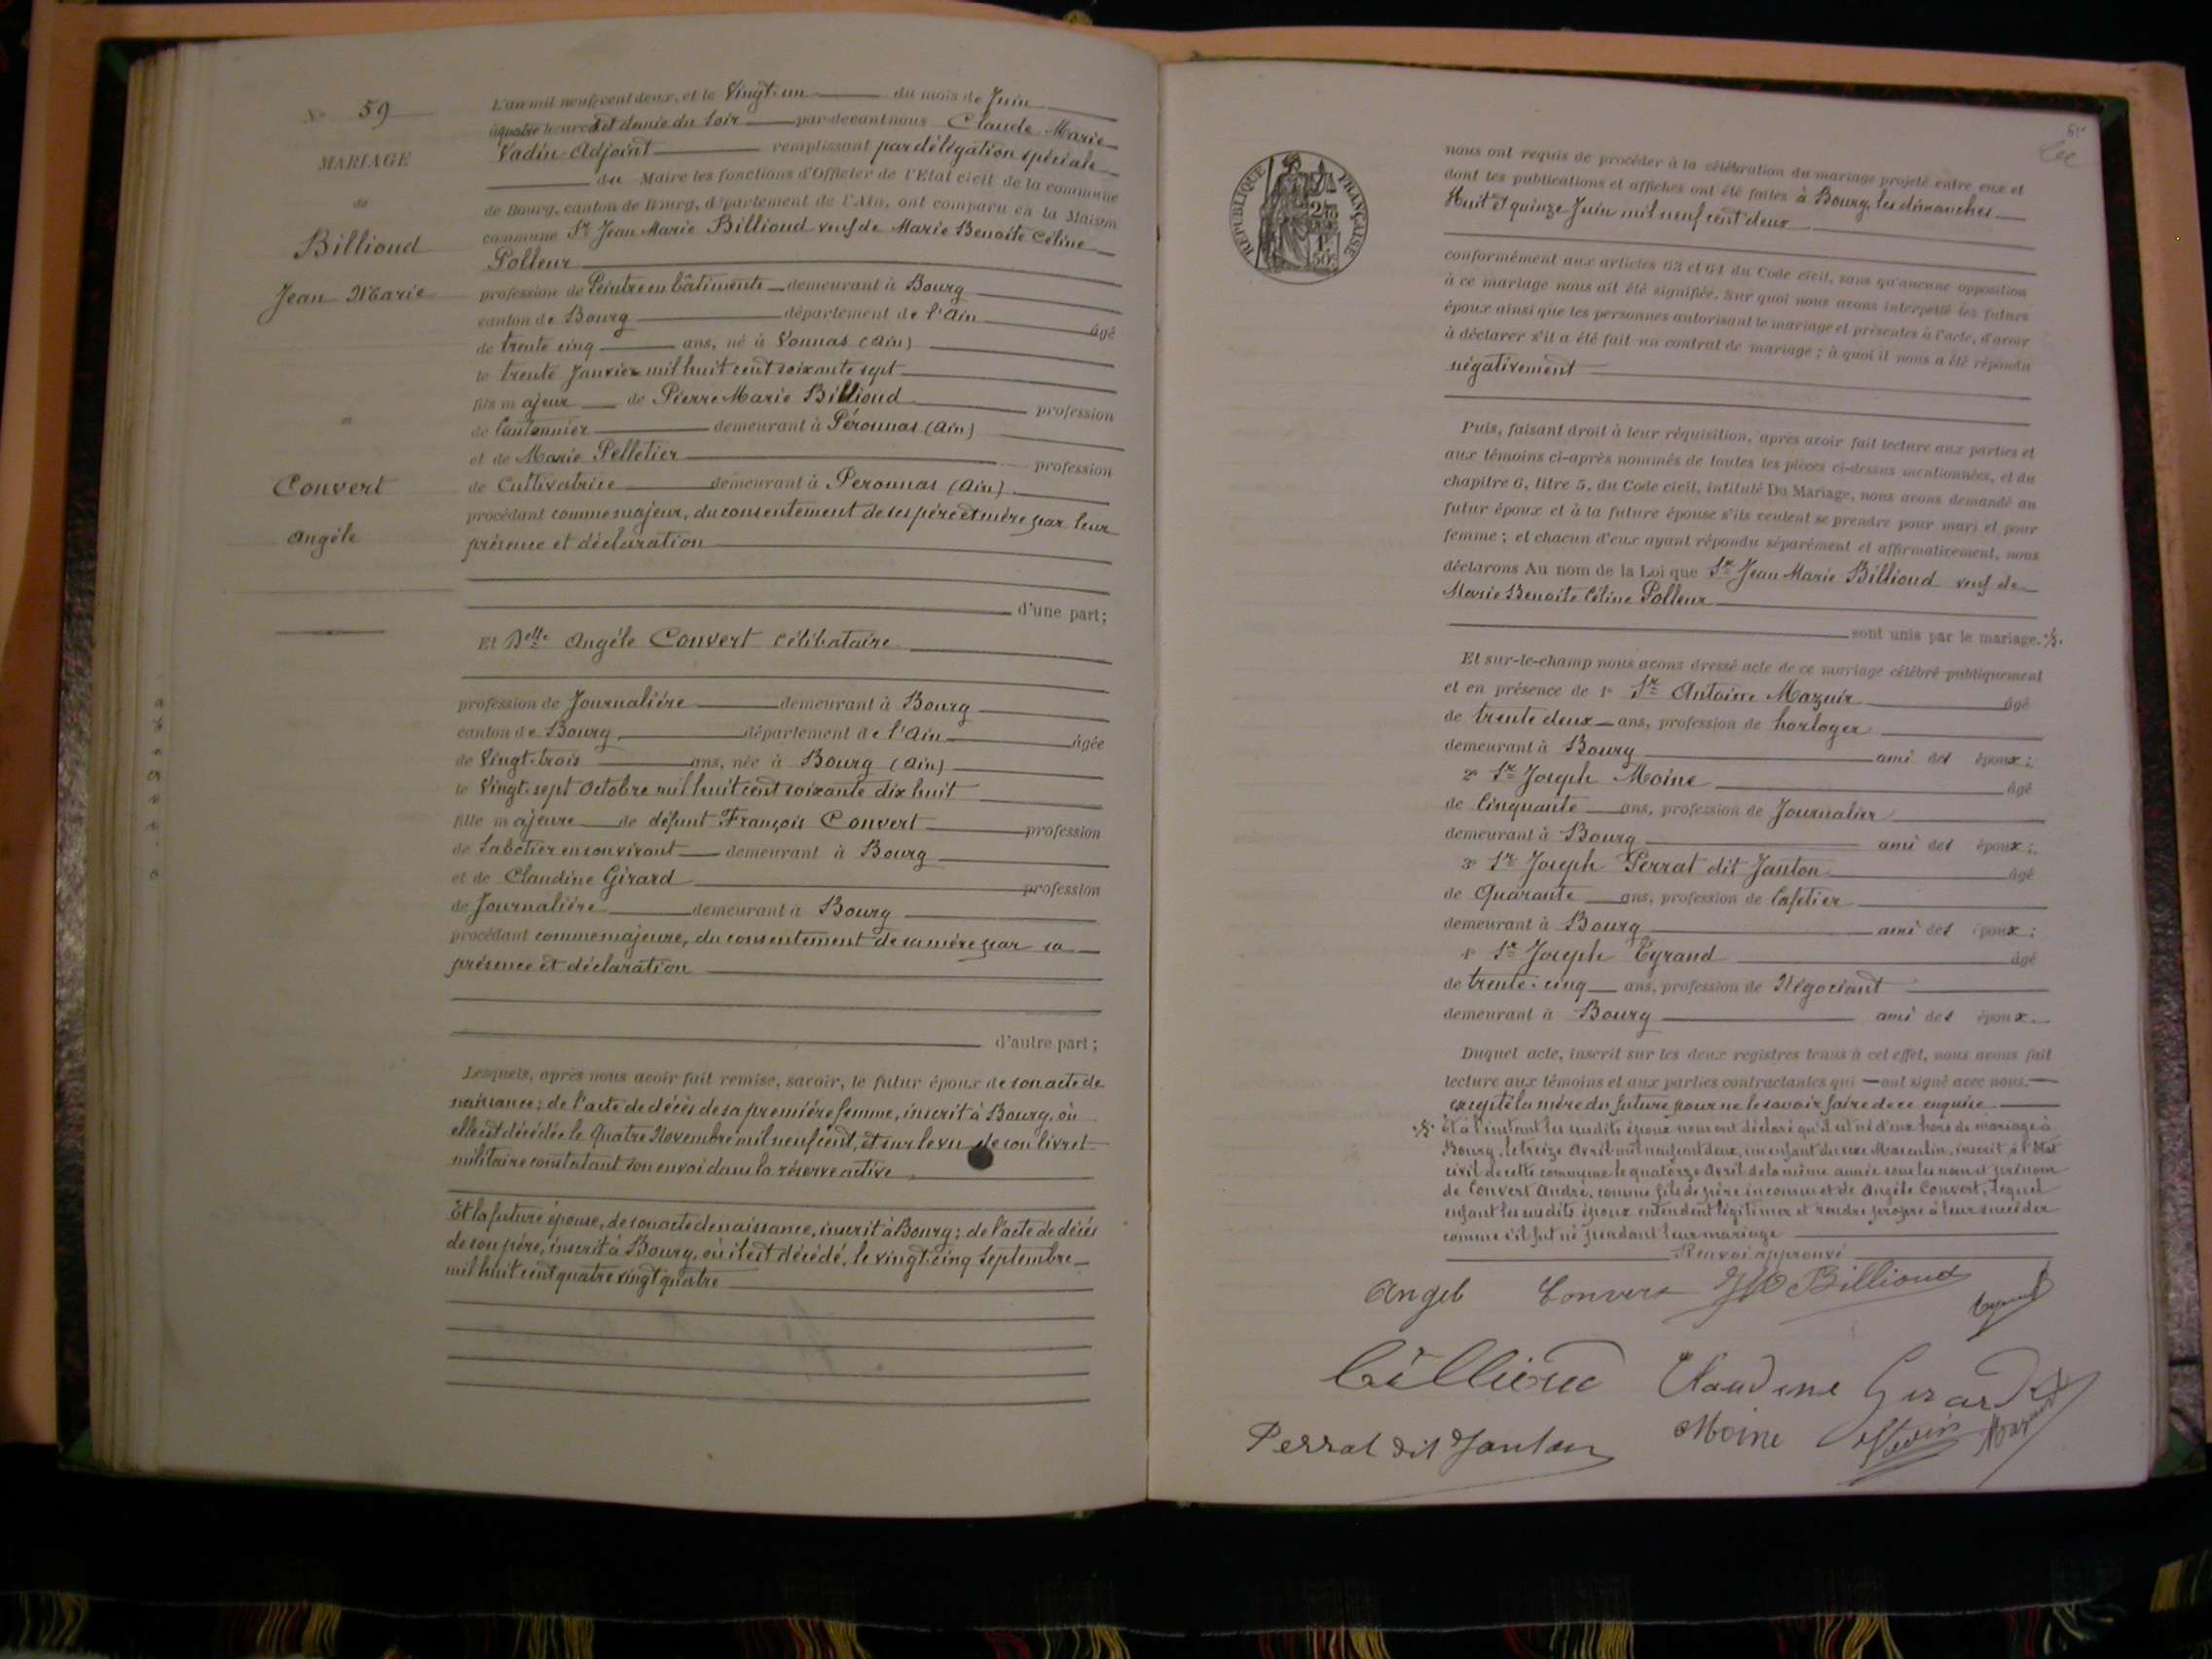 N° 59
MARIAGE
de
Billioud
Jean Marie
et
Convert
Angèle
L'an mil neuf cent deux, et le Vingt-un du mois de Juin
à quatre heures et demie du soir par-devant nous Claude Marie
Vadin Adjoint remplissant par délégation spéciale
du Maire les fonctions d'Officier de l'État civil de la commune
de Bourg, canton de Bourg, département de l'Ain, ont comparu en la Maison
commune Sr Jean Marie Billioud veuf de Marie Benoite Céline
Polleur
profession de Peintre en bâtiments demeurant à Bourg
canton de Bourg département de l'Ain âgé
de trente cinq ans, né à Vonnas (Ain)
le trente Janvier mil huit cent soixante sept
fils majeur de Pierre Marie Billioud profession
de Cantonnier demeurant à Péronnas (Ain)
et de Marie Pelletier profession
de Cultivatrice demeurant à Peronnas (Ain)
procédant comme majeur, du consentement de ses père et mère par leur
présence et déclaration
d'une part;
Et Delle Angèle Convert célibataire
profession de Journalière demeurant à Bourg
canton de Bourg département de l'Ain âgée
de Vingt-trois ans, née à Bourg (Ain)
le Vingt-sept Octobre mil huit cent soixante dix huit
fille majeure de défunt François Convert profession
de Sabotier en son vivant demeurant à Bourg
et de Claudine Girard profession
de Journalière demeurant à Bourg
procédant comme majeure, du consentement de sa mère par sa
présence et déclaration
d'autre part;
Lesquels, après nous avoir fait remise, savoir, le futur époux de son acte de
naissance; de l'acte de décès de sa première femme, inscrit à Bourg, où
elle est décédée le Quatre Novembre mil neuf cent, et sur le vu de son livret
militaire constatant son envoi dans la réserve active
Et la future épouse, de son acte de naissance, inscrit à Bourg; de l'acte de décès
de son père, inscrit à Bourg, où il est décédé, le vingt-cinq Septembre
mil huit cent quatre vingt quatre
RÉPUBLIQUE FRANÇAISE
nous ont requis de procéder à la célébration du mariage projeté entre eux et
dont les publications et affiches ont été faites à Bourg, les dimanches
Huit et quinze Juin mil neuf cent deux
conformément aux articles 63 et 64 du Code civil, sans qu'aucune opposition
à ce mariage nous ait été signifiée. Sur quoi nous avons interpellé les futurs
époux ainsi que les personnes autorisant le mariage et présentes à l'acte, d'avoir
à déclarer s'il a été fait un contrat de mariage; à quoi il nous a été répondu
négativement
Puis, faisant droit à leur réquisition, après avoir fait lecture aux parties et
aux témoins ci-après nommés de toutes les pièces ci-dessus mentionnées, et du
chapitre 6, titre 5, du Code civil, intitulé Du Mariage, nous avons demandé au
futur époux et à la future épouse s'ils veulent se prendre pour mari et pour
femme; et chacun d'eux ayant répondu séparément et affirmativement, nous
déclarons Au nom de la Loi que Sr Jean Marie Billioud veuf de
Marie Benoite Céline Polleur
sont unis par le mariage.
Et sur-le-champ nous avons dressé acte de ce mariage célébré publiquement
et en présence de 1° Sr Antoine Mazuir âgé
de trente deux ans, profession de horloger
demeurant à Bourg ami des époux;
2° Sr Joseph Moine âgé
de Cinquante ans, profession de Journalier
demeurant à Bourg ami des époux;
3° Sr Joseph Perrat dit Janton âgé
de Quarante ans, profession de Cafetier
demeurant à Bourg ami des époux;
4° Sr Joseph Eyrand âgé
de trente-cinq ans, profession de Négociant
demeurant à Bourg ami des époux
Duquel acte, inscrit sur les deux registres tenus à cet effet, nous avons fait
lecture aux témoins et aux parties contractantes qui ont signé avec nous.
excepté la mère du future pour ne le savoir faire de ce enquise
Et à l'instant les susdits époux nous ont déclaré qu'il est né d'eux hors de mariage à
Bourg, le treize Avril mil neuf cent deux, un enfant du sexe Masculin, inscrit à l'Etat
civil de cette commune le quatorze Avril de la même année sous les nom et prénom
de Convert André, comme fils de père inconnu et de Angèle Convert, lequel
enfant les susdits époux entendent légitimer et rendre propre à leur succéder
comme s'il fut né pendant leur mariage
Renvoi approuvé
Angele Convert JM Billioud
billioud Claudine Girard
Perrat dit Janton Moine Vadin Mazuir